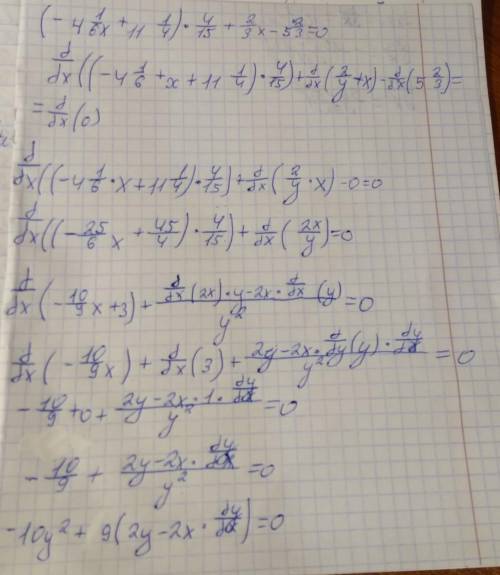 (-4 1/6x + 11 1/4) · 4/15 + 2/3x - 5 2/3 = 0
d/dx((-4 1/6 + x + 11 1/4) · 4/15) + d/dx(2/y + x) - d/dx(5 2/3) =
= d/dx(0)
d/dx((-4 1/6 · x + 11 1/4) · 4/15) + d/dx(2/y · x) - 0 = 0
d/dx((-25/6 x + 45/4) · 4/15) + d/dx(2x/y) = 0
d/dx(-10/9 x + 3) + (d/dx(2x) · y - 2x · d/dx(y))/y² = 0
d/dx(-10/9 x) + d/dx(3) + (2y - 2x · d/dy(y) · dy/dx)/y² = 0
-10/9 + 0 + (2y - 2x · 1 · dy/dx)/y² = 0
-10/9 + (2y - 2x · dy/dx)/y² = 0
-10y² + 9(2y - 2x · dy/dx) = 0